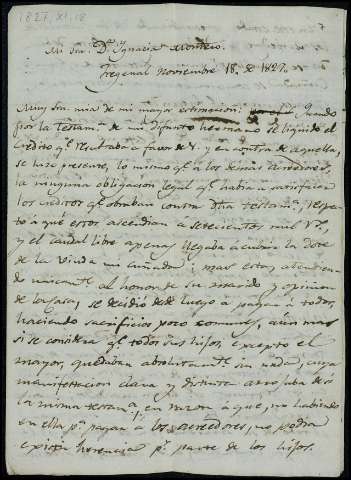 1827, XI, 18
Mi Sra. Dª Ignacia Montero.
Fregenal Noviembre 18. de 1827.
Muy Sra. mia de mi mayor estimacion: Quando
por la testamª de mi difunto hermano se liquidó el
credito qe resultaba a favor de V. y en contra de aquella,
se hizo presente, lo mismo qe a los demas acreedores,
la ninguna obligacion legal qe habia a satisfacer
los creditos qe obraban contra dha testamª; respe-
to a qe estos ascendian á setecientos mil rs,
y el caudal libre apenas llegaba a cubrir la dote
de la viuda mi cuñada; mas esta, atendien-
do unicamte al honor de su marido y opinion
de la casa, se decidió desde luego a pagar á todos,
haciendo sacrificios poco comunes, aun mas
si se considera qe todos sus hijos, excepto el
mayor, quedaban absolutamte sin nada; cuya
manifestacion clara y distinta arrojaba de sí
la misma testamª, en razon á que, no habiendo
en ella pª pagar a los acreedores, no podia
exigir herencia pr parte de los hijos.